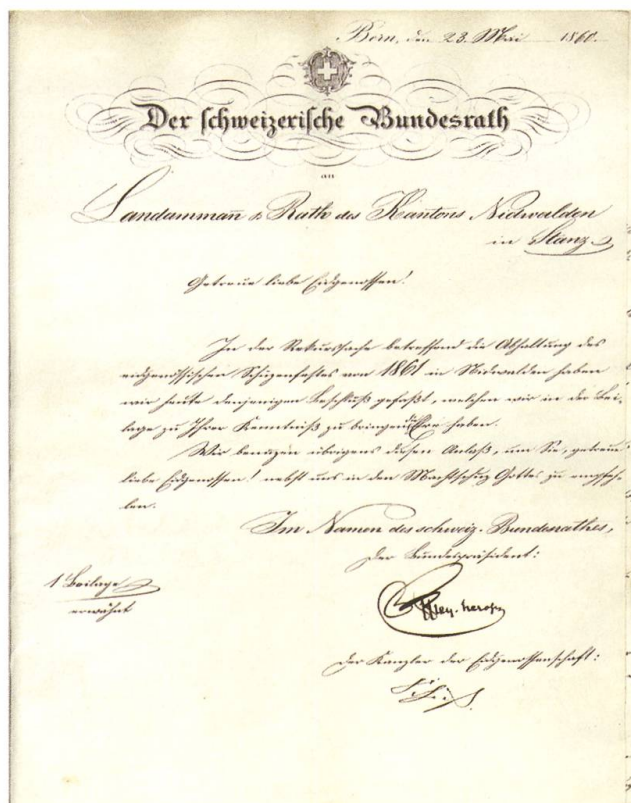 Bern, den 23. Mai 1860.
Der schweizerische Bundesrath
an
Landammañ & Rath des Kantons Nidwalden
in Stanz
Getreue liebe Eidgenossen!
In der Rekurssache betreffend die Abhaltung des
eidgenössischen Schüzenfestes von 1861 in Nidwalden haben
wir heute denjenigen Beschluß gefaßt, welchen wir in der Bei-
lage zu Ihrer Kenntniß zu bringen die Ehre haben.
Wir benuzen übrigens diesen Anlaß, um Sie, getreue
liebe Eidgenossen! nebst uns in den Machtschuz Gottes zu empfeh-
len.
Im Namen des schweiz. Bundesrathes,
Der Bundespräsident:
1 Beilage
erwähnt
Frey-Herosé
Der Kanzler der Eidgenossenschaft: